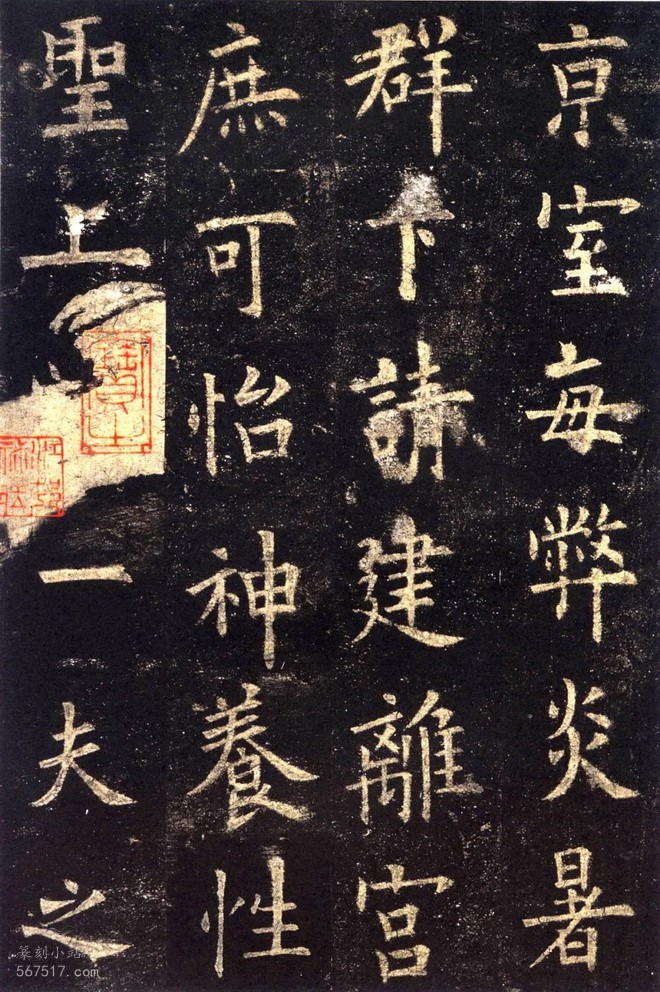 京室每弊炎暑
群下請建離宮
庶可怡神養性
聖上一夫之
篆刻小站
567517.com